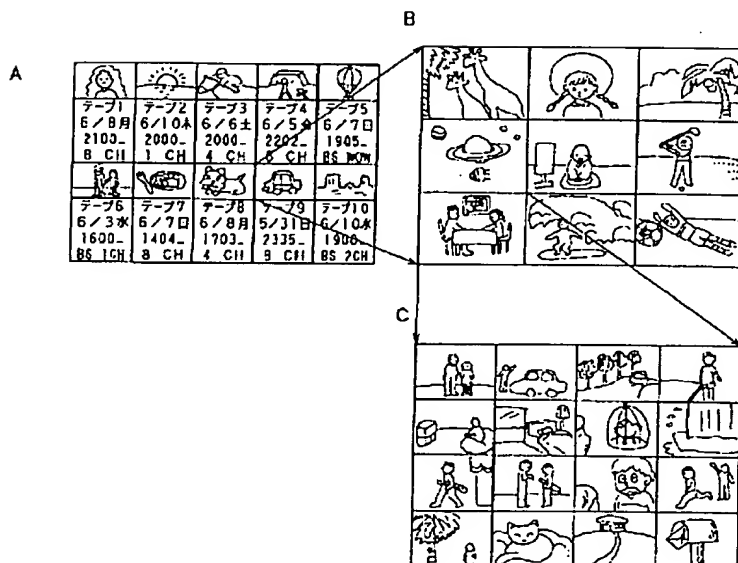 B
A
テープ1 テープ2 テープ3 テープ4 テープ5
6/8月 6/10水 6/6土 6/5金 6/7日
2100_ 2000_ 2000_ 2202_ 1905_
8 CH 1 CH 4 CH 6 CH BS WOW
テープ6 テープ7 テープ8 テープ9 テープ10
6/3水 6/7日 6/8月 5/31日 6/10水
1600_ 1404_ 1703_ 2335_ 1900_
BS 1CH 8 CH 4 CH 8 CH BS 2CH
C